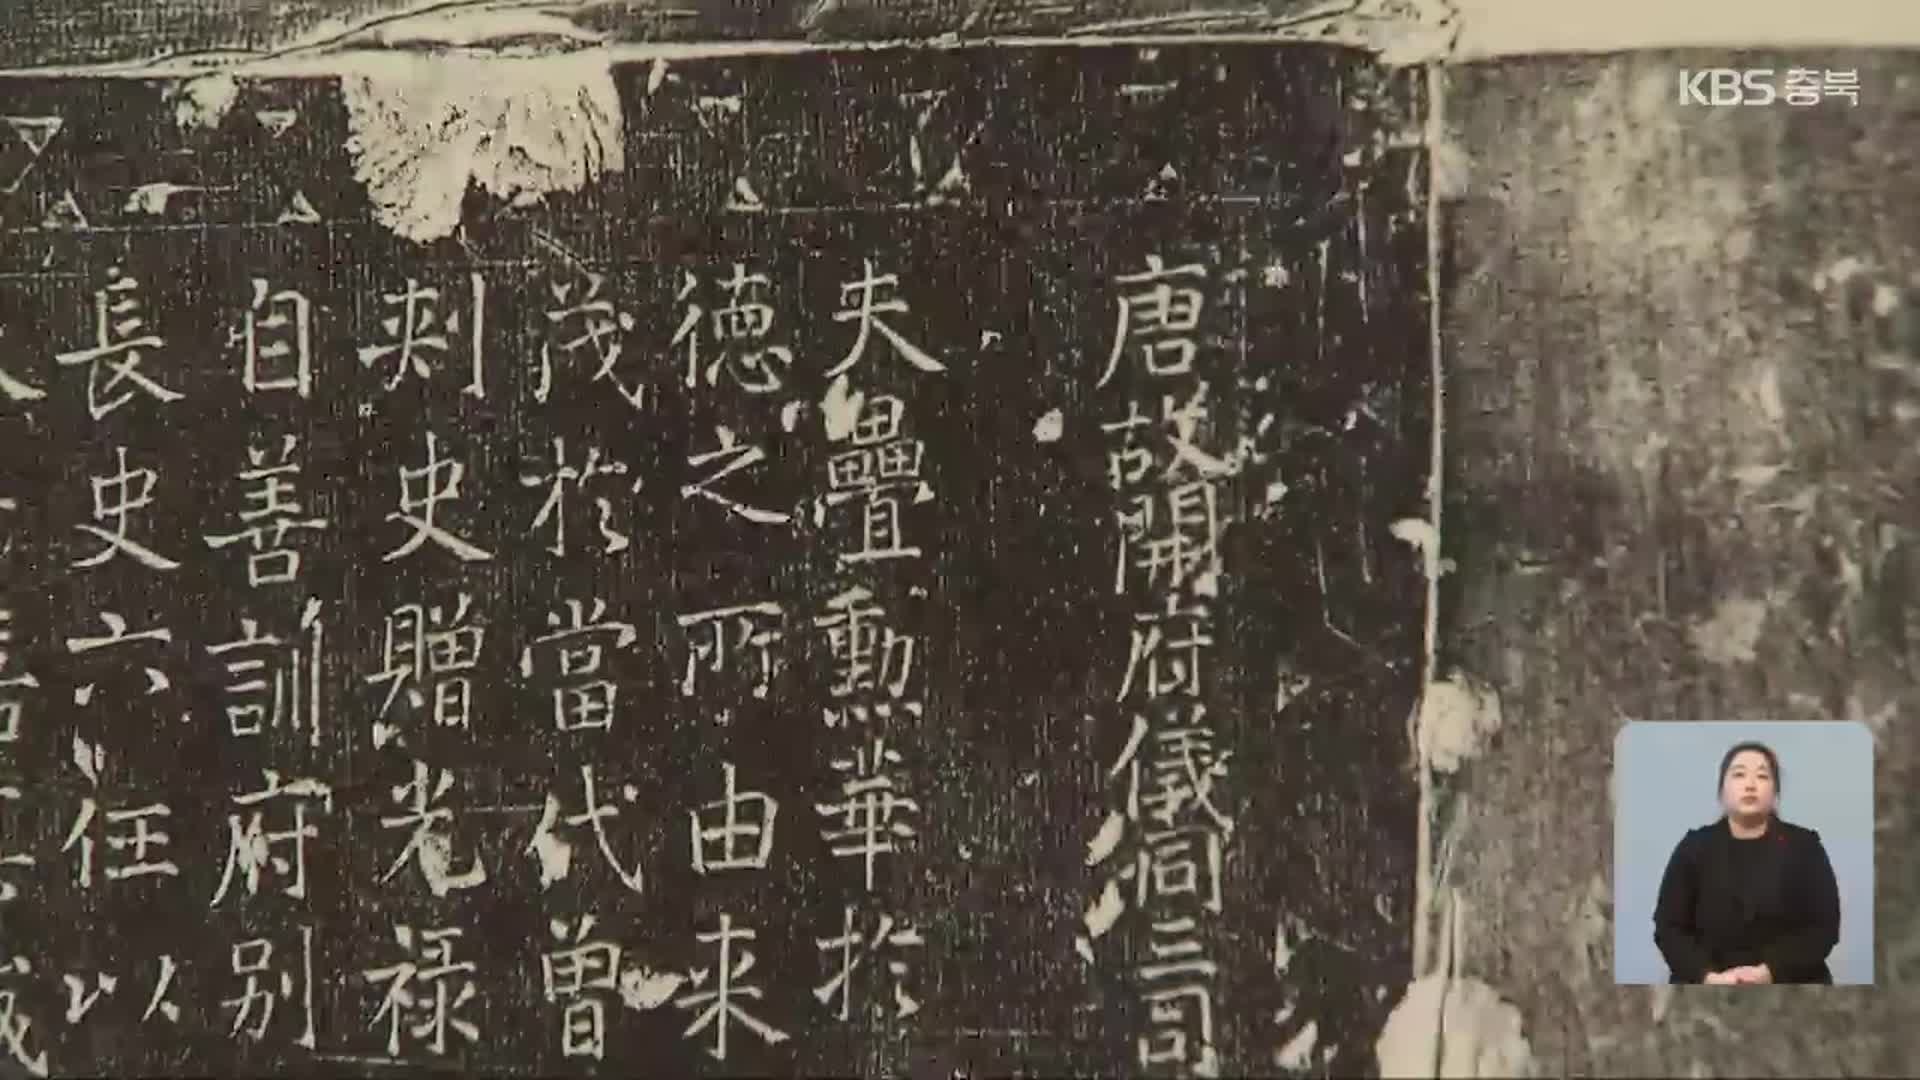 KBS 충북
唐故開府儀同三司
夫疊勳華於
德之所由来
茂於當代曽
刺史贈光禄
自善訓府别
長史六任以